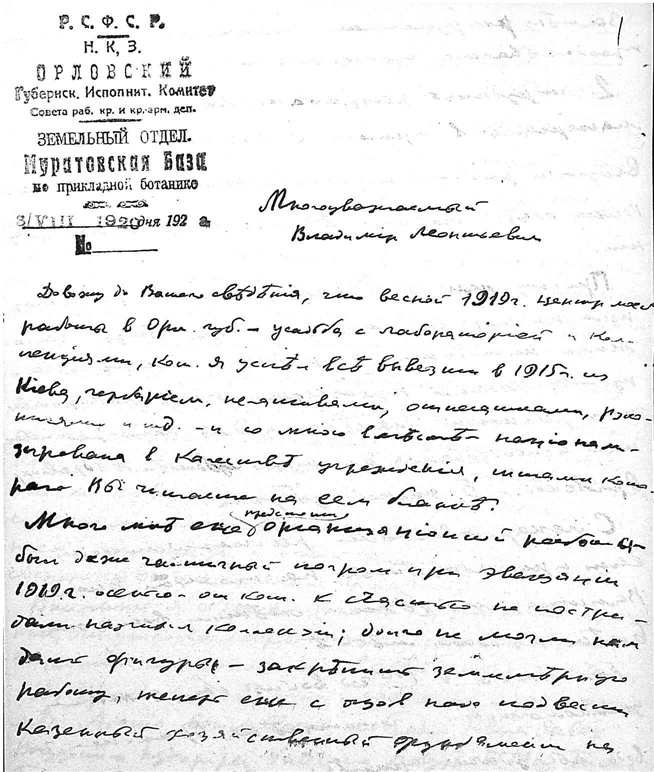 1
Р. С. Ф. С. Р.
Н. К. З.
ОРЛОВСКИЙ
Губернск. Исполнит. Комитет
Совета раб. кр. и кр.-арм. деп.
ЗЕМЕЛЬНЫЙ ОТДЕЛ.
Муратовская База
по прикладной ботанике
8/VIII 1920 дня 192 г.
№
Многоуважаемый
Владимір Леонтьевич
Довожу до Вашего свѣдѣнія, что весной 1919 г. центр моей
работы в Орл. губ. – усадьба с лабораторіей и кол-
лекціями, кот. я успѣл всѣ вывезти в 1915 г. из
Кіева, гербаріем, и тд. – и со мною вмѣстѣ – национали-
зирована в качествѣ учрежденія, штамп кото-
раго Вы читаете на сем бланкѣ.
Много мнѣ еще предстоит организаціонной работы
был даже частичный погром при эвакуаціи
1919 г. осенью от кот. к счастью не постра-
дали коллекціи; долго не могли нам
дать – закрѣпить землемѣрную
работу, теперь еще с надо подвести
казенный хозяйственный фундамент на